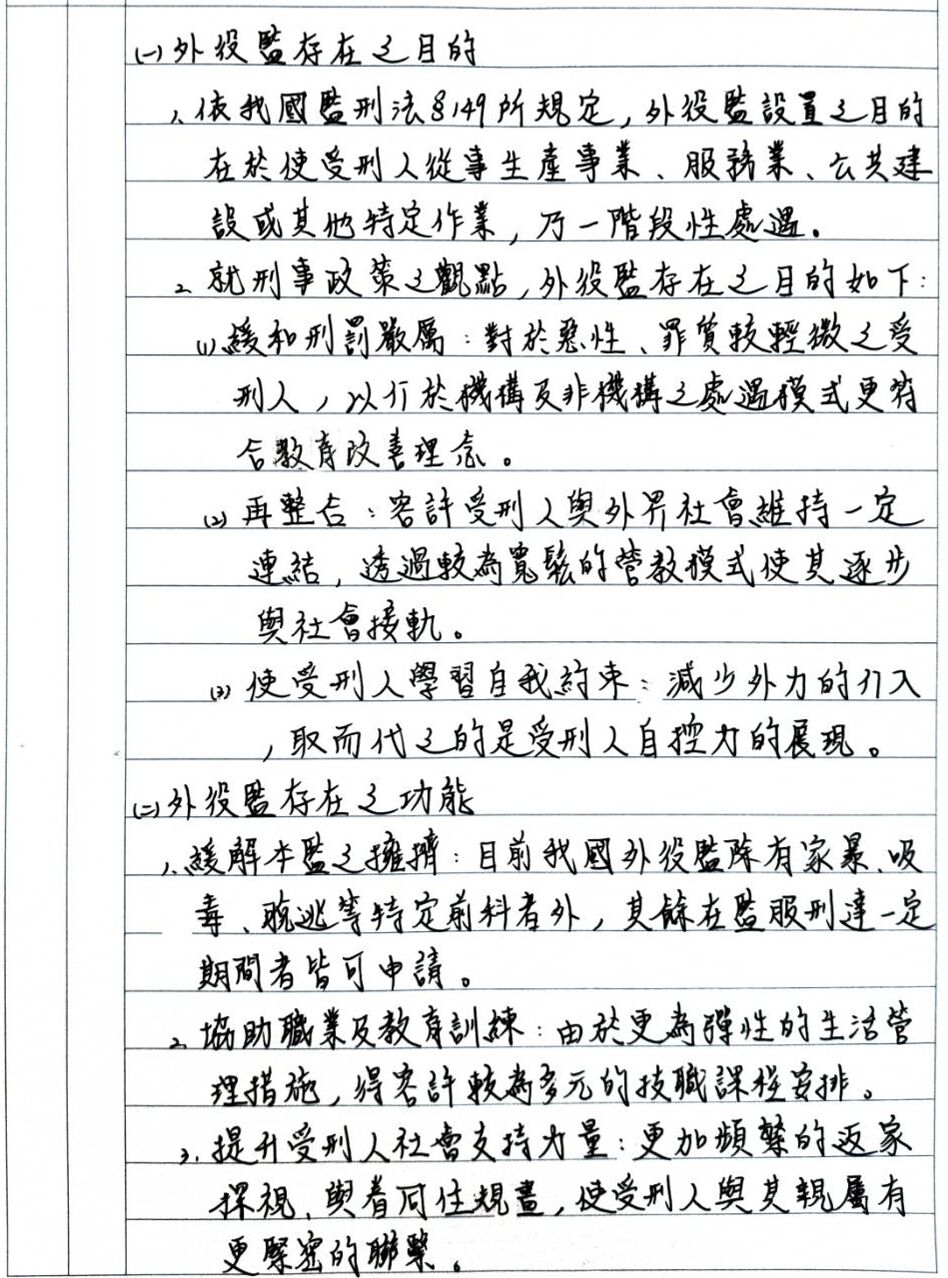 (一)外役監存在之目的
1、依我國監刑法§149所規定,外役監設置之目的
在於使受刑人從事生產事業、服務業、公共建
設或其他特定作業,乃一階段性處遇。
2、就刑事政策之觀點,外役監存在之目的如下:
(1)緩和刑罰嚴厲:對於惡性、罪質較輕微之受
刑人,以介於機構及非機構之處遇模式更符
合教育改善理念。
(2)再整合:容許受刑人與外界社會維持一定
連結,透過較為寬鬆的管教模式使其逐步
與社會接軌。
(3)使受刑人學習自我約束:減少外力的介入
,取而代之的是受刑人自控力的展現。
(二)外役監存在之功能
1、緩解本監之擁擠:目前我國外役監除有家暴、吸
毒、脫逃等特定前科者外,其餘在監服刑達一定
期間者皆可申請。
2、協助職業及教育訓練:由於更為彈性的生活管
理措施,得容許較為多元的技職課程安排。
3、提升受刑人社會支持力量:更加頻繁的返家
探視、與眷同住規畫,使受刑人與其親屬有
更緊密的聯繫。